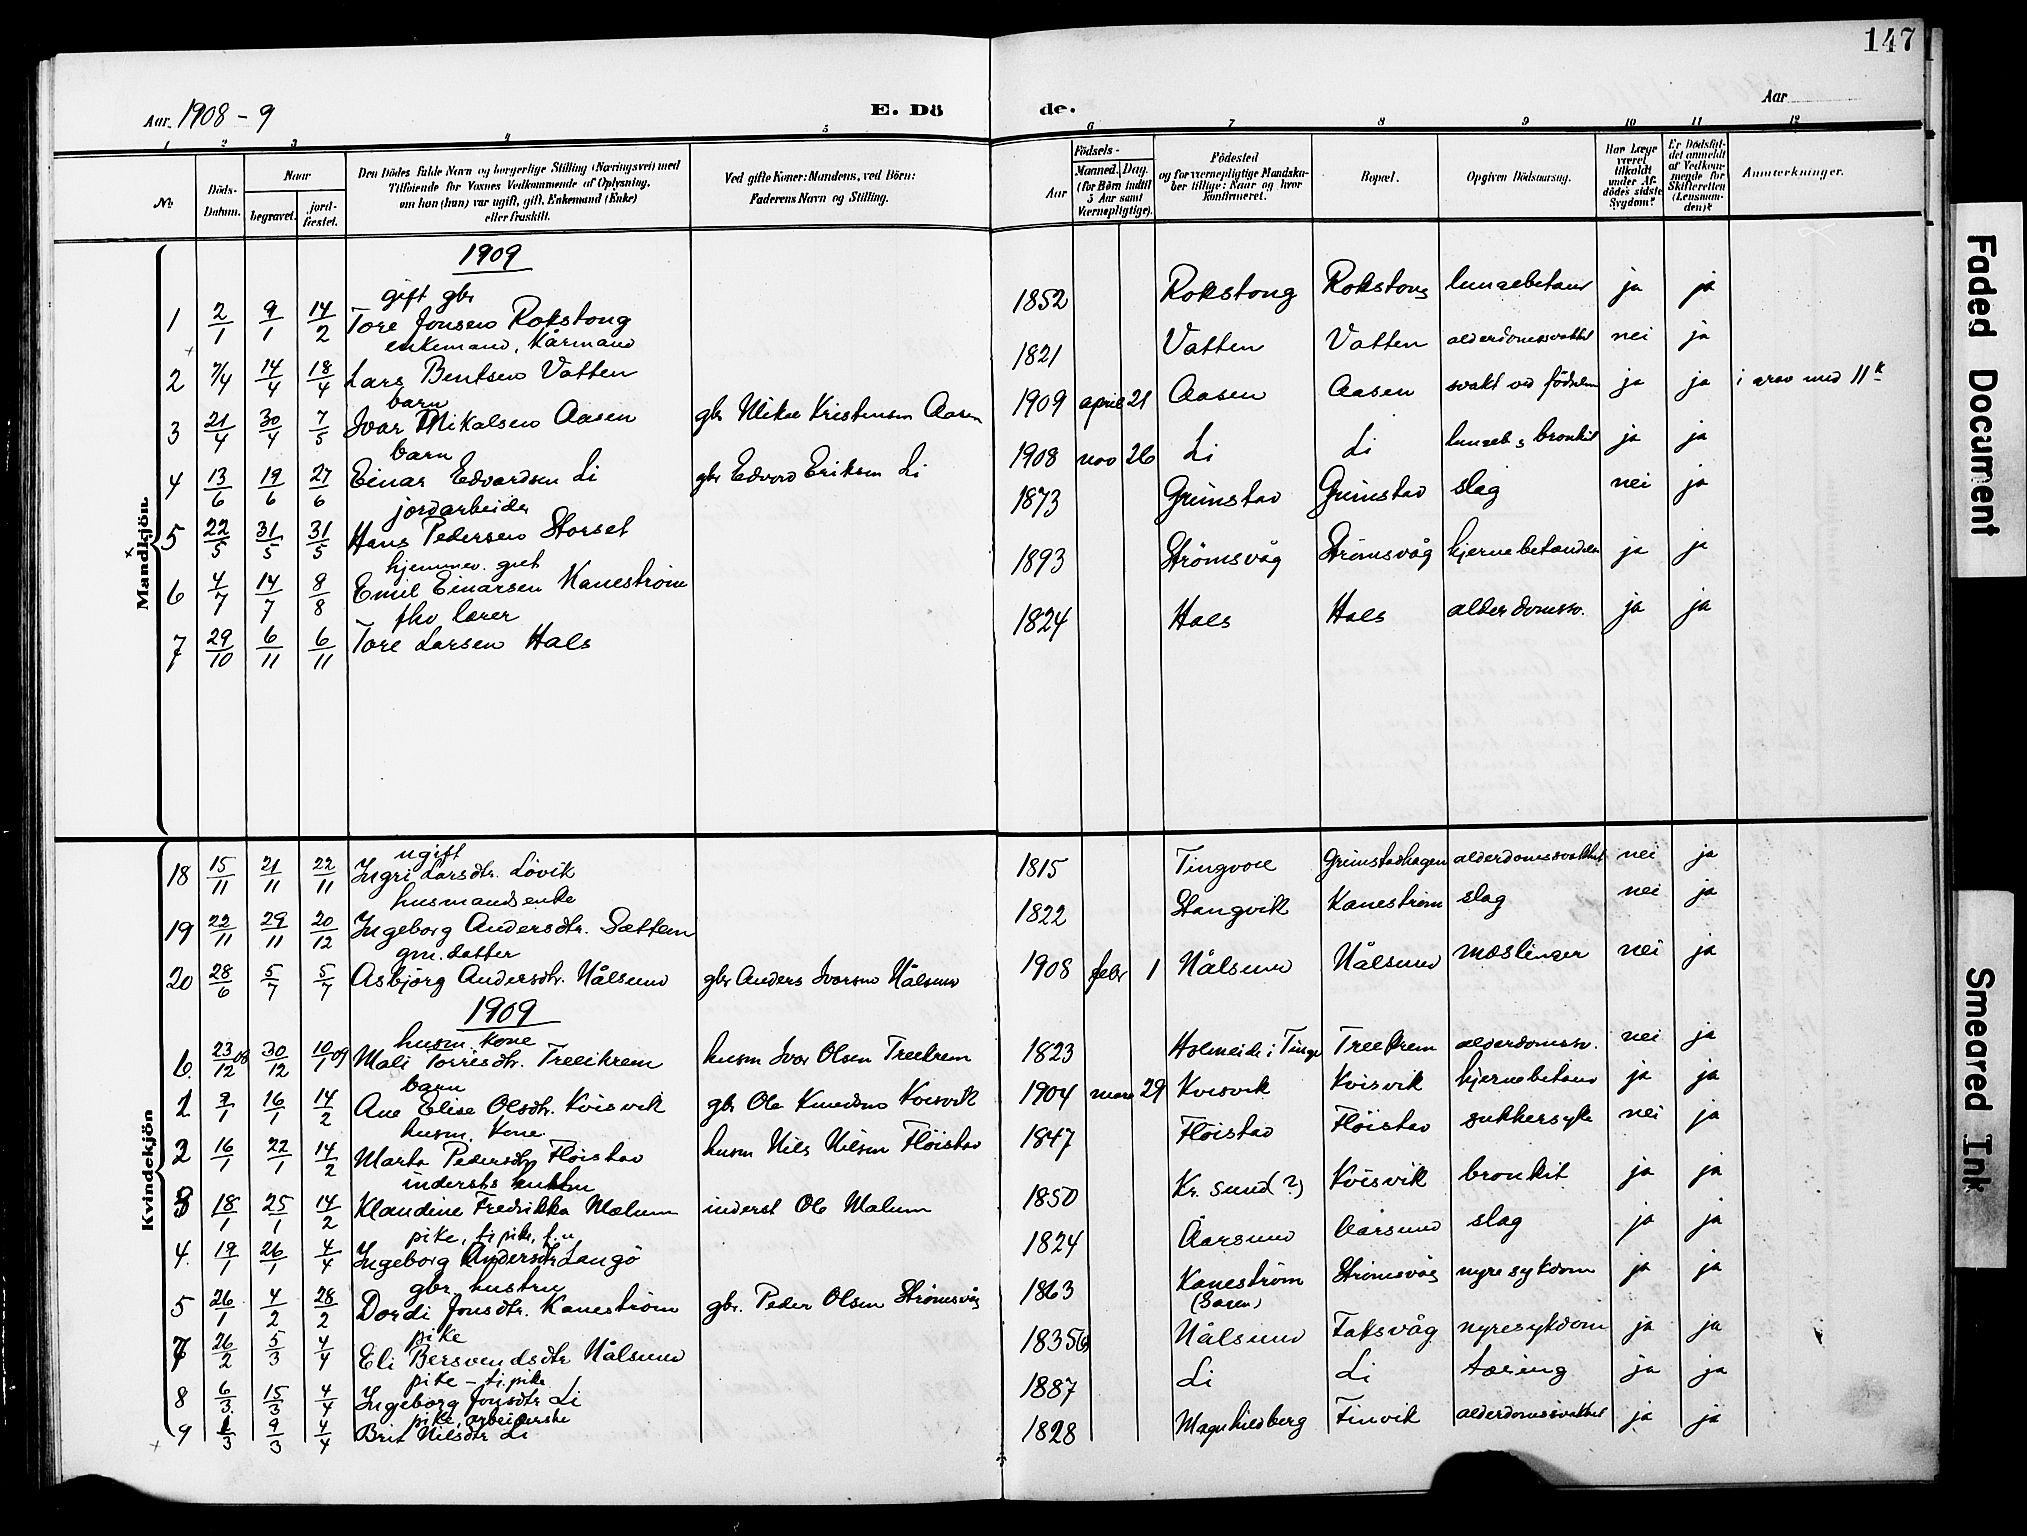 147
Aar 1908-9
E. Dö
de.
Aar
1 2 3 4 5 6 7 8 9 10 11 12
No
Döds-Datum.
Naar
begravet.
jord-fæstet.
Den Dödes fulde Navn og borgerlige Stilling (Næringsvei) med Tilföiende for Voxnes Vedkommende af Oplysning, om han (hun) var ugift, gift, Enkemand (Enke) eller fraskilt.
Ved gifte Koner: Mandens, ved Börn: Faderens Navn og Stilling.
Födsels-
Aar
Maaned. Dag. (for Börn indtil 5 Aar samt Værnepligtige).
Födested og for værnepligtige Mandska-ber tillige: Naar og hvor Konfirmeret.
Bopæl.
Opgiven Dödsaarsag.
Har Læge været tilkaldt under Af-dödes sidste Sygdom?
Er Dödsfal-det anmeldt af Vedkom-mende for Skifteretten (Lensman-den)?
Anmerkninger.
Mandkjön.
1909
gift gbr
1 2/1 9/1 14/2 Tore Jonsen Rokstong 1852 Rokstong Rokstong lungebetænd ja ja
enkemand, kårmand
2 7/4 14/4 18/4 Lars Bentsen Vatten 1821 Vatten Vatten alderdomssvakhet nei ja
barn
3 21/4 30/4 7/5 Ivar Mikalsen Aasen gbr Mikal Kristensen Aasen 1909 april 21 Aasen Aasen svakt ved fødselen ja ja i grav med 11 k
barn
4 13/6 19/6 27/6 Einar Edvardsen Li gbr Edvard Eriksen Li 1908 nov 26 Li Li lungeb & bronkit ja ja
jordarbeider
5 22/5 31/5 31/5 Hans Pedersen Storset 1873 Grimstad Grimstad slag nei ja
hjemmev. gut
6 4/7 14/7 8/8 Emil Einarsen Kanestrøm 1893 Strømsvåg Strømsvåg hjernebetændelse ja ja
fhv lærer
7 29/10 6/11 6/11 Tore Larsen Hals 1824 Hals Hals alderdomssv. ja ja
Kvindekjön
ugift
18 15/11 21/11 22/11 Ingri Larsdtr. Løvik 1815 Tingvoll Grimstadhagen alderdomssvakhet nei ja
husmandsenke
19 22/11 29/11 20/12 Ingeborg Andersdtr. Sættem 1822 Stangvik Kanestrøm slag nei ja
gm. datter
20 28/6 5/7 5/7 Asbjørg Andersdtr. Nålsund gbr Anders Ivarsen Nålsund 1908 febr 1 Nålsund Nålsund mæslinger nei ja
1909
husm. kone
6. 23/12 08 30/12 10/1 09 Mali Torrisdtr. Treekrem husm Ivar Olsen Treekrem 1823 Holmeide i Tingv Treekrem alderdomssv. nei ja
barn
1 9/1 16/1 14/2 Ane Elise Olsdtr. Kvisvik gbr Ole Knudsen Kvisvik 1904 mars 29 Kvisvik Kvisvik hjernebetænd ja ja
husm. kone
2 16/1 22/1 14/2 Marta Pedersdtr Fløistad husm Nils Nilsen Fløistad 1847 Fløistad Fløistad sukkersyke nei ja
indersts hustru
3 18/1 25/1 14/2 Klaudine Fredrikka Mælum inderst Ole Mælum 1850 Kr.sund(?) Kvisvik bronkit ja ja
pike, ti pike, f. u
4. 19/1 26/1 4/4 Ingeborg Andersdtr Langö 1824 Aarsund Aarsund slag ja ja
gbr. hustru
5 26/1 4/2 28/2 Dordi Jonsdtr. Kanestrøm gbr. Peder Olsen Strømsvåg 1863 Kanestrøm Strømsvåg nyresykdom ja ja
pike
7 26/2 5/3 4/4 Eli Bersvendsdtr Nålsund 1835 Nålsund Faksvåg nyresykdom ja ja
pike - ti. pike
8 6/3 15/3 4/4 Ingeborg Jonsdtr Li 1887 Li Li tæring ja ja
pike, arbeiderske
9 1/3 9/3 4/4 Brit Nilsdtr Li 1828 Magnhildberg Finvik alderdomssvakhet ja ja
Faded Document
Smeared Ink